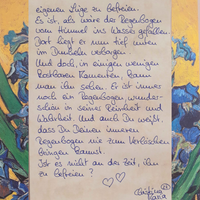 eigenen Lüge zu befreien.
Es ist, als wäre der Regenbogen
vom Himmel ins Wasser gefallen.
Dort liegt er nun tief unten
im Dunkeln verborgen.
Und doch, in einigen wenigen
kostbaren Momenten, kann
man ihn sehen. Er ist immer
noch ein Regenbogen wunder-
schön in seiner Reinheit und
Wahrheit. Und auch Du weißt,
dass Du Deinen inneren
Regenbogen nie zum Verlöschen
bringen kannst.
Ist es nicht an der Zeit, ihn
zu befreien?